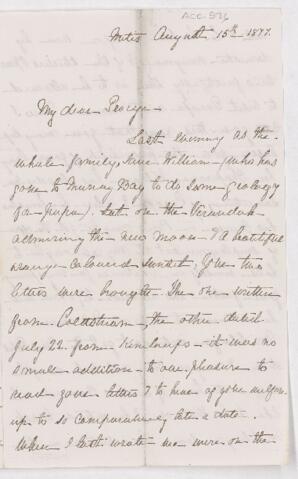 ACC-976
Metis August 15th 1877.
My dear George
Last evening as the
whole family, save William – (who has
gone to Murray Bay to do some geology
for papa). Sat on the Verandah
admiring the new moon & a beautiful
orange coloured sunset, your two
letters were brought. The one written
from Coldstream, the other dated
July 22 from Kamloops – it was no
small addition to our pleasure to
read your letters & to hear of your welfare
up to so comparatively late a date.
When I last wrote we were on the